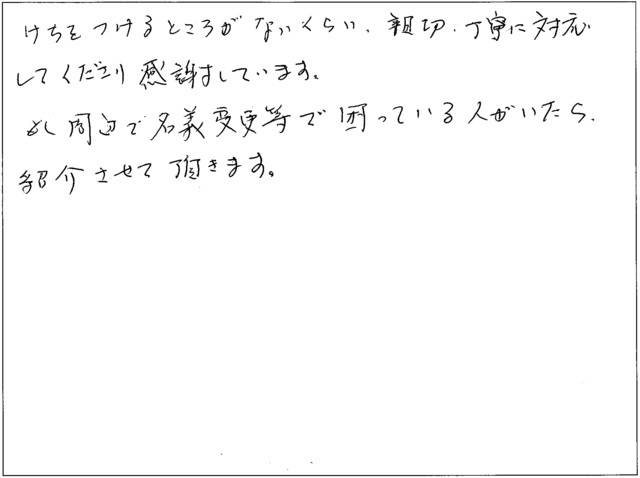 けちをつけるところがないくらい、親切、丁寧に対応
してくださり感謝をしています。
もし周辺で名義変更等で困っている人がいたら、
紹介させて頂きます。